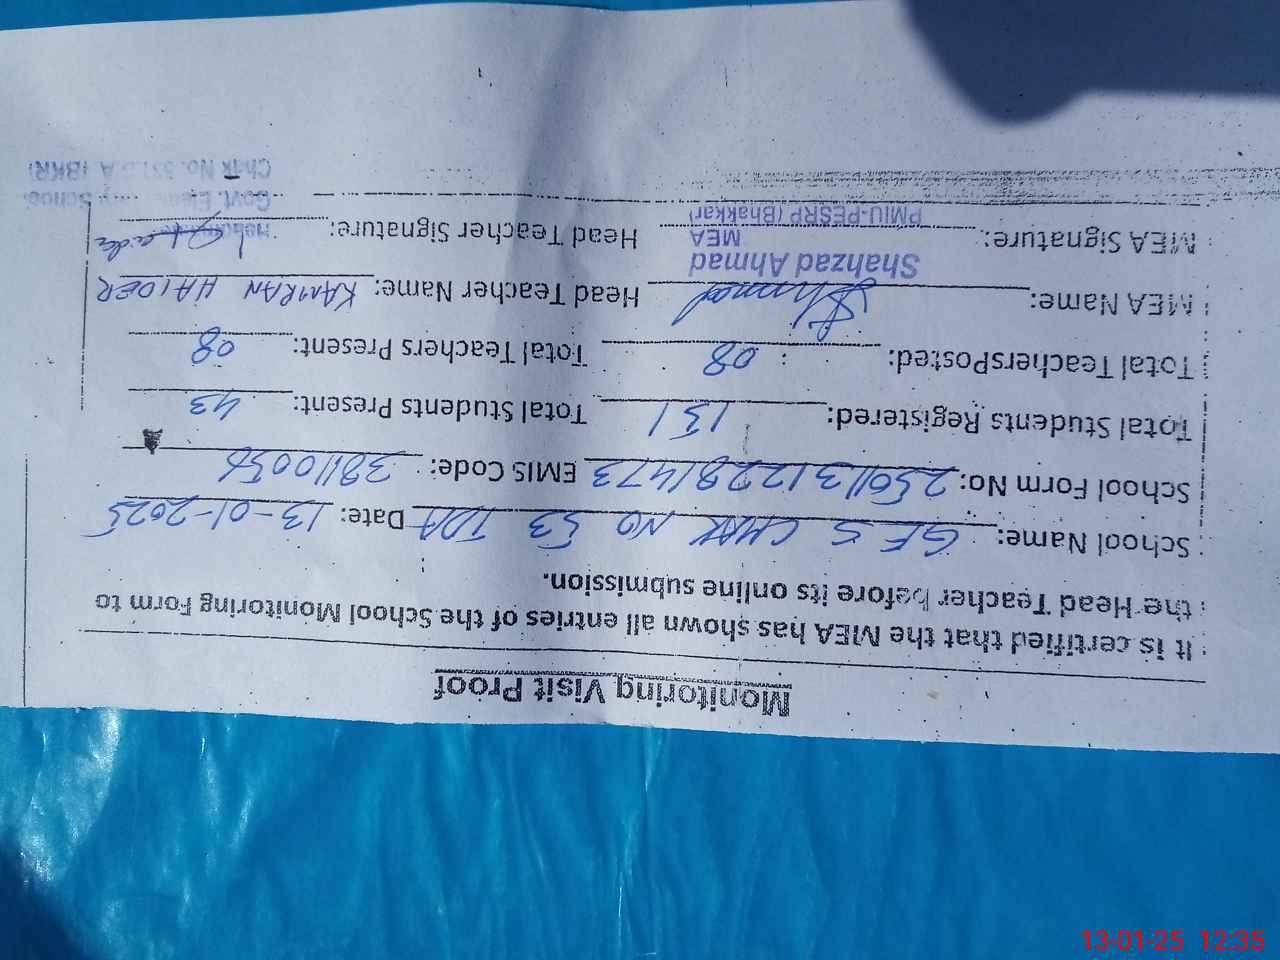 Monitoring Visit Proof
It is certified that the MEA has shown all entries of the School Monitoring Form to
the Head Teacher before its online submission.
School Name: GES CHAK NO 53 TDA Date: 13-01-2025
School Form No: 25011312281473 EMIS Code: 38110056
Total Students Registered: 131 Total Students Present: 43
Total TeachersPosted: 08 Total Teachers Present: 08
MEA Name: Ahmad Head Teacher Name: KAMRAN HAIDER
Shahzad Ahmad
MEA
MEA Signature: PMIU-PESRP (Bhakkar) Head Teacher Signature:
Govt. School
Chak No. (BKR)
13-01-25 12:35